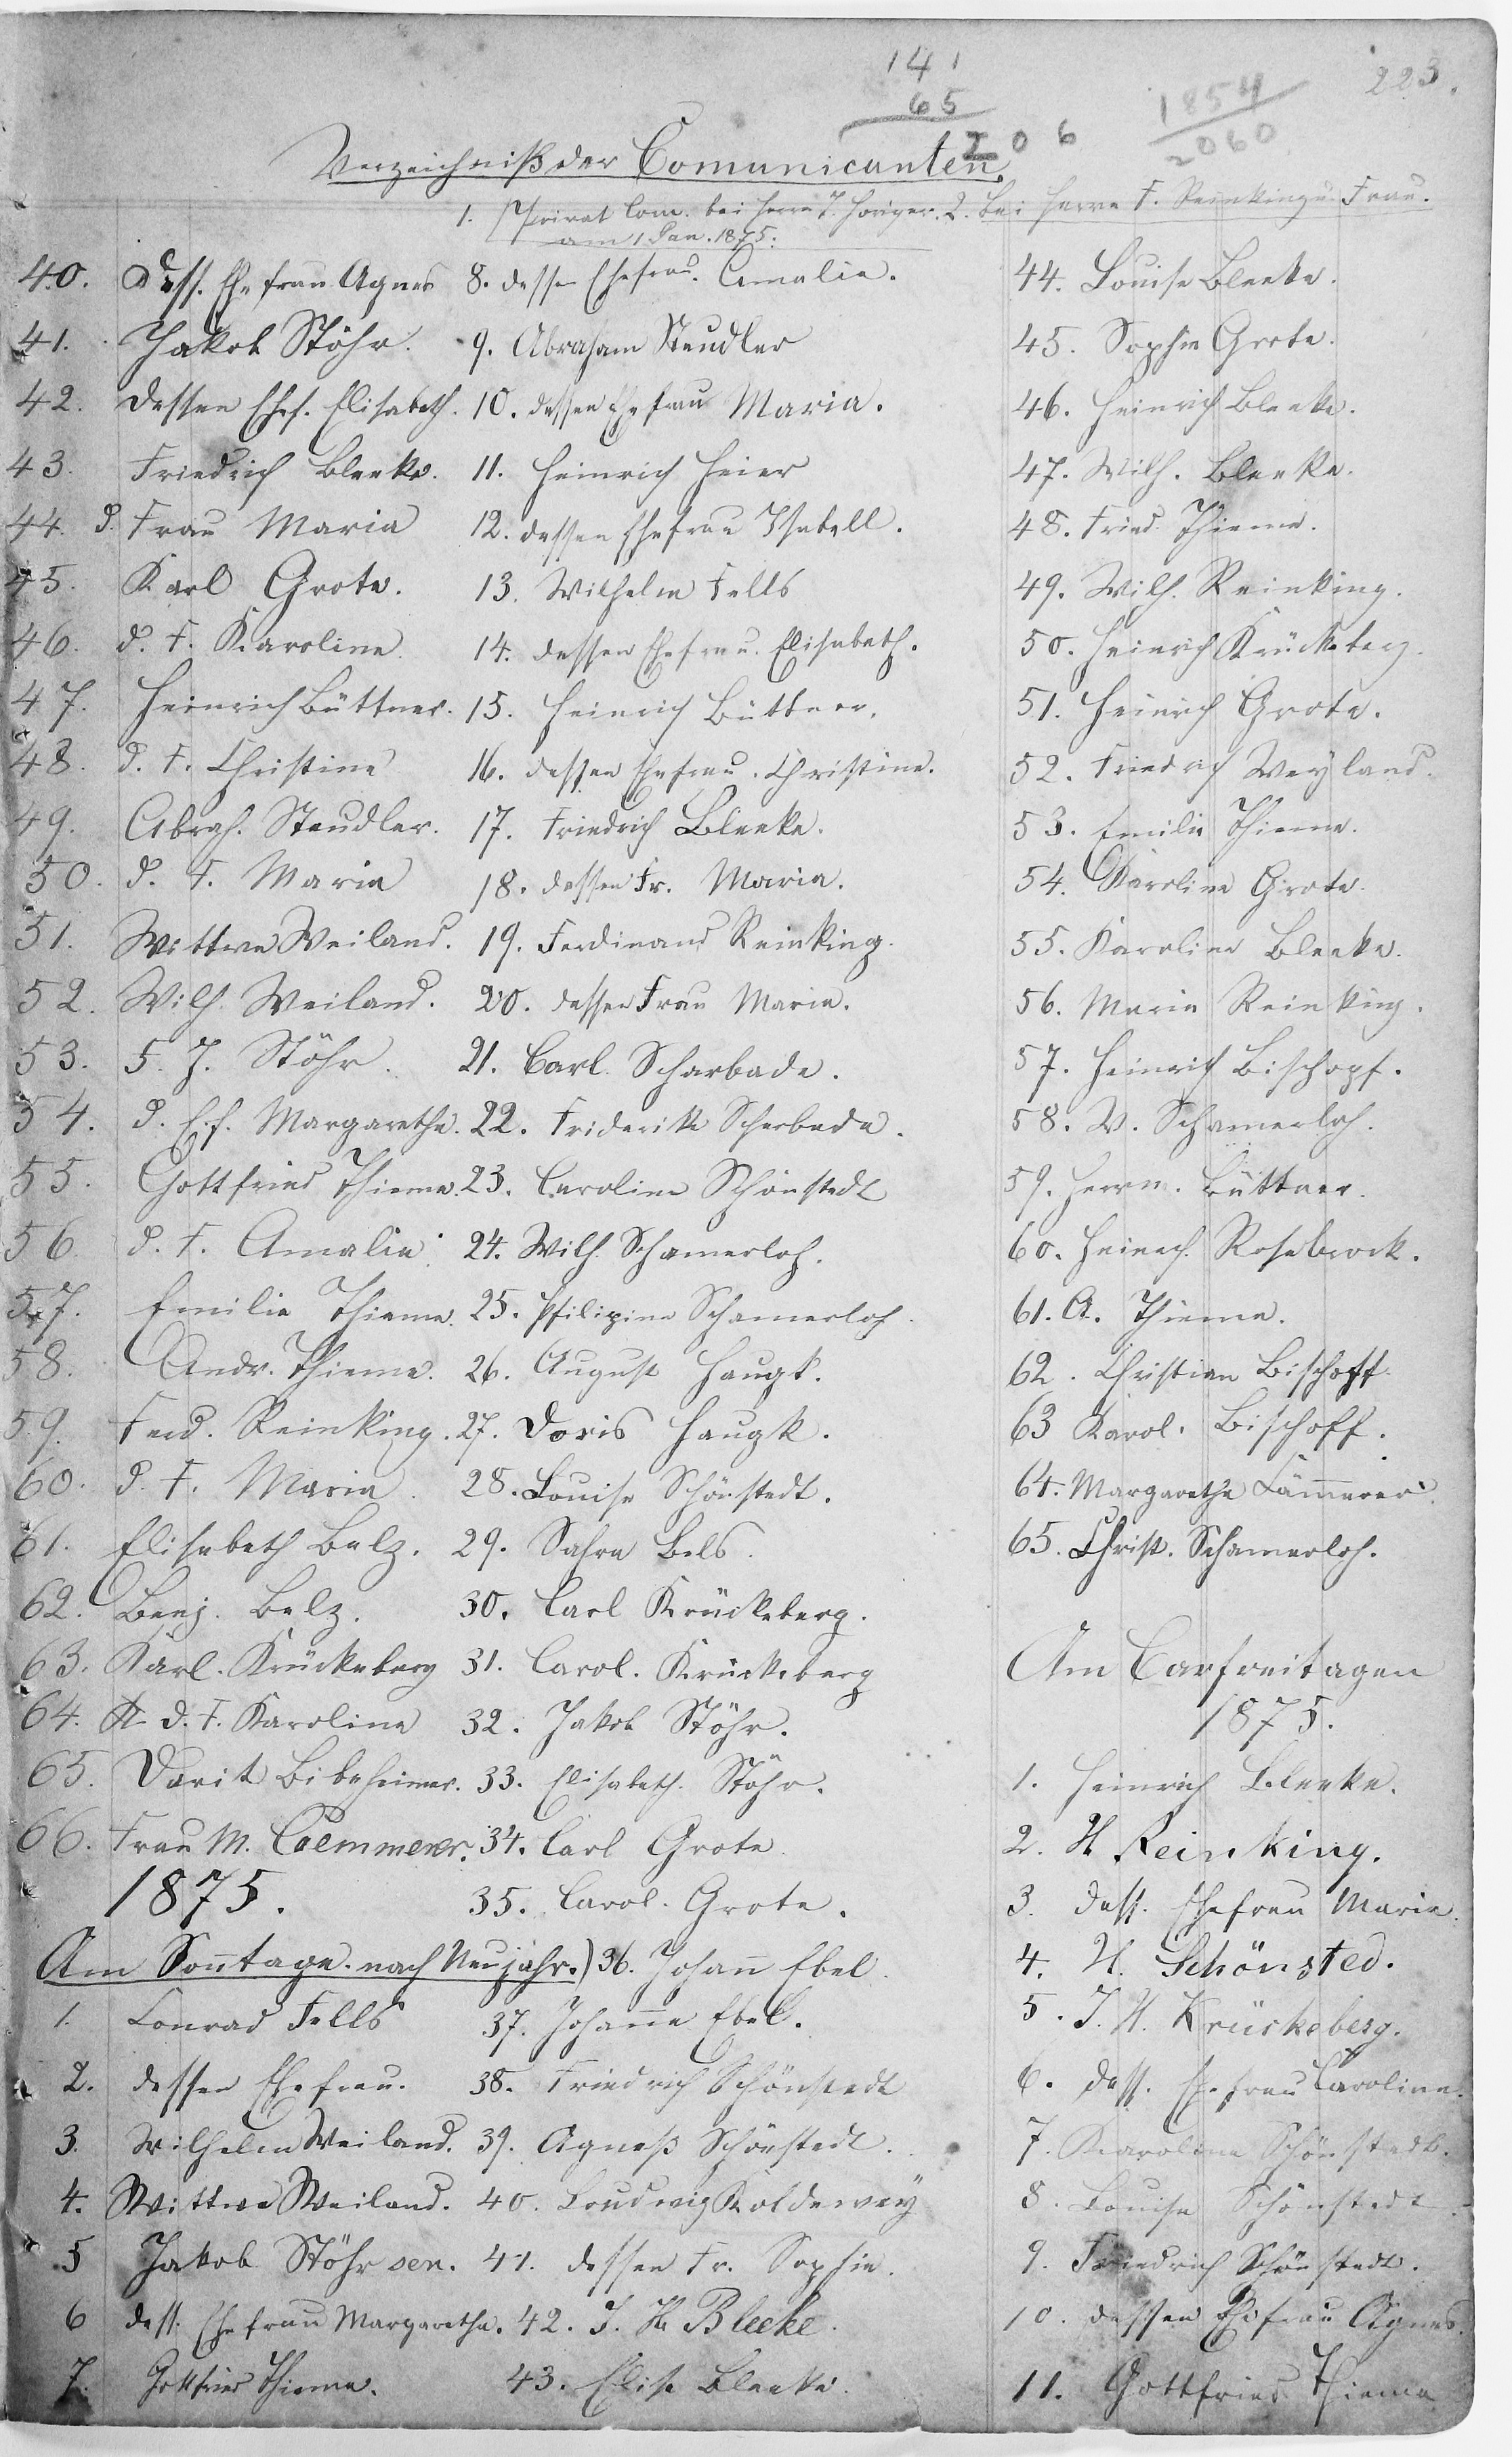 223.
141
65
206
1854
2060
Verzeichniß der Comunicanten.
1. Privat Com. bei Herrn J. 2. bei Herrn F. Reinking u. Frau.
am 1 Jan. 1875.
40. Dess. Ehefrau Agnes
41. Jakob Stöhr.
42. dessen Ehef. Elisabeth.
43. Friedrich Bleeke.
44. d. Frau Maria
45. Karl Grote.
46. d. F. Karoline
47. Heinrich Büttner.
48. d. F. Christine
49. Abrah. Steudler.
50. d. F. Maria
51. Wittwe Weiland.
52. Wilh. Weiland.
53. J. Stöhr.
54. d. E.f. Margarethe.
55. Gottfried Thieme.
56. d. F. Amalie
57. Emilie Thieme.
58. Andr. Thieme.
59. Ferd. Reinking.
60. d. F. Maria
61. Elisabeth Belz.
62. Benj. Belz.
63. Karl. Krückeberg
64. d. F. Karoline
65. Bibeheimer.
66. Frau M. Caemmerer.
1875.
Am Sonntage nach Neujahr.)
1. Conrad Fells
2. dessen Ehefrau.
3. Wilhelm Weiland.
4. Wittwe Weiland.
5 Jakob Stöhr sen.
6 dess. Ehefrau Margaretha.
7. Gottfried Thieme.
8. dessen Ehefrau. Amalie.
9. Abraham Steudler
10. dessen Ehefrau Maria.
11. Heinrich Heier
12. dessen Ehefrau Isabell.
13. Wilhelm Fells
14. dessen Ehefrau. Elisabeth.
15. Heinrich Büttner.
16. dessen Ehefrau. Christine.
17. Friedrich Bleeke.
18. dessen Fr. Maria.
19. Ferdinand Reinking.
20. dessen Frau Maria.
21. Carl Scharbade.
22. Friderike Scherbade.
23. Caroline Schönstedt
24. Wilh. Schamerloh.
25. Philipine Schamerloh.
26. August Haugk.
27. Doris Haugk.
28. Louise Schönstedt.
29. Sahra Bels.
30. Carl Krückeberg.
31. Carol. Krückeberg
32. Jakob Stöhr.
33. Elisabeth. Stöhr.
34. Carl Grote.
35. Carol. Grote.
36. Johann Ebel.
37. Johanne Ebel.
38. Friedrich Schönstedt
39. Agneß Schönstedt.
40. Loudwig Koldewey
41. dessen Fr. Sophie.
42. J. H. Bleeke.
43. Elise Bleeke.
44. Louise Bleeke.
45. Sophie Grote.
46. Heinrich Bleeke.
47. Wilh. Bleeke.
48. Fried. Thieme.
49. Wilh. Reinking.
50. Heinrich Krückeberg.
51. Heinrich Grote.
52. Friedrich Weyland.
53. Emilie Thieme.
54. Karoline Grote.
55. Karoline Bleeke.
56. Maria Reinking.
57. Heinrich Bischopf.
58. W. Schamerloh.
59. Herrm. Büttner.
60. Heinrch. Rosebrock.
61. A. Thieme.
62. Christian Bischoff.
63 Karol. Bischoff.
64. Margarethe Kämmerer.
65. Christ. Schamerloh.
Am Carfreitagen
1875.
1. Heinrich Bleeke.
2. H Reinking.
3. dess. Ehefrau Marie.
4. H. Schönsted.
5. J. H. Krückeberg.
6. dess. Ehefrau Caroline.
7. Karoline Schönstedt.
8. Louise Schönstedt
9. Friedrich Schönstedt.
10. dessen Ehefrau Agnes.
11. Gottfried Thieme